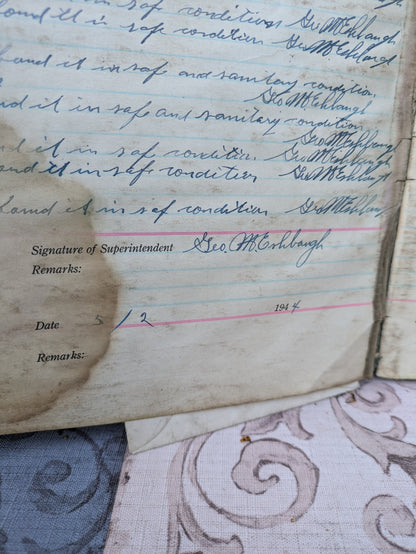 in saf conditions Geo M. Eshbaugh
found it in safe condition Geo M. Eshbaugh
found it in safe and sanitary condition.
Geo M. Eshbaugh
nd it in safe and sanitary condition
Geo M. Eshbaugh
nd it in saf condition. Geo M. Eshbaugh
ound it in safe condition Geo M. Eshbaugh
found it in saf condition Geo M. Eshbaugh
Signature of Superintendent Geo. M. Eshbaugh
Remarks:
Date 5/2 1944
Remarks: